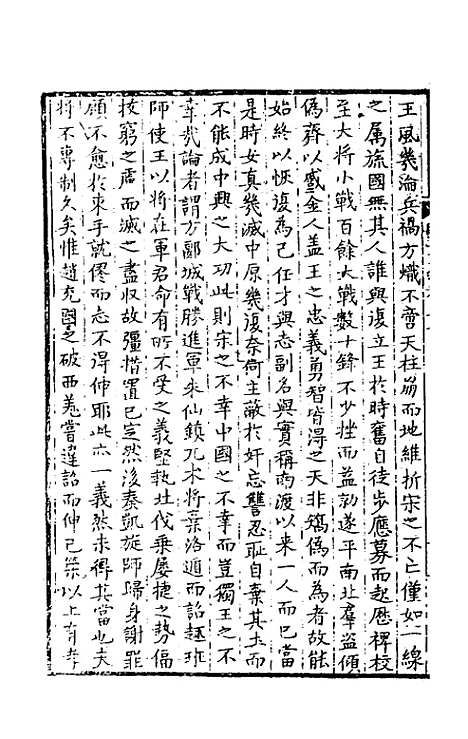 王風幾淪兵禍方熾不啻天柱崩而地維折宋之不亡僅如一線
之属旒國無其人誰與復立王於時奮自徒步應募而起歷裨校
至大將小戰百餘大戰數十鋒不少挫而益勍遂平南北羣盜傾
偽齊以蹙金人盖王之忠義勇智皆得之天非矯偽而為者故能
始終以恢復為己任才與志副名與實稱南渡以来一人而已當
是時女真幾滅中原幾復奈何主蔽於奸忘讐忍恥自棄其土而
不能成中興之大功此則宋之不幸中國之不幸而豈獨王之不
幸哉論者謂方郾城戰勝進軍朱仙鎮兀术将棄洛遁而詔趣班
師使王以將在軍君命有所不受之義堅執北伐乗屡捷之勢偪
技窮之虜而滅之盡収故疆措置已定然後奏凱旋師歸身謝罪
顧不愈扵束手就僇而志不得伸耶此亦一義然未得其當也夫
将不專制久矣惟趙充國之破西羌嘗違詔而伸己策以上有孝